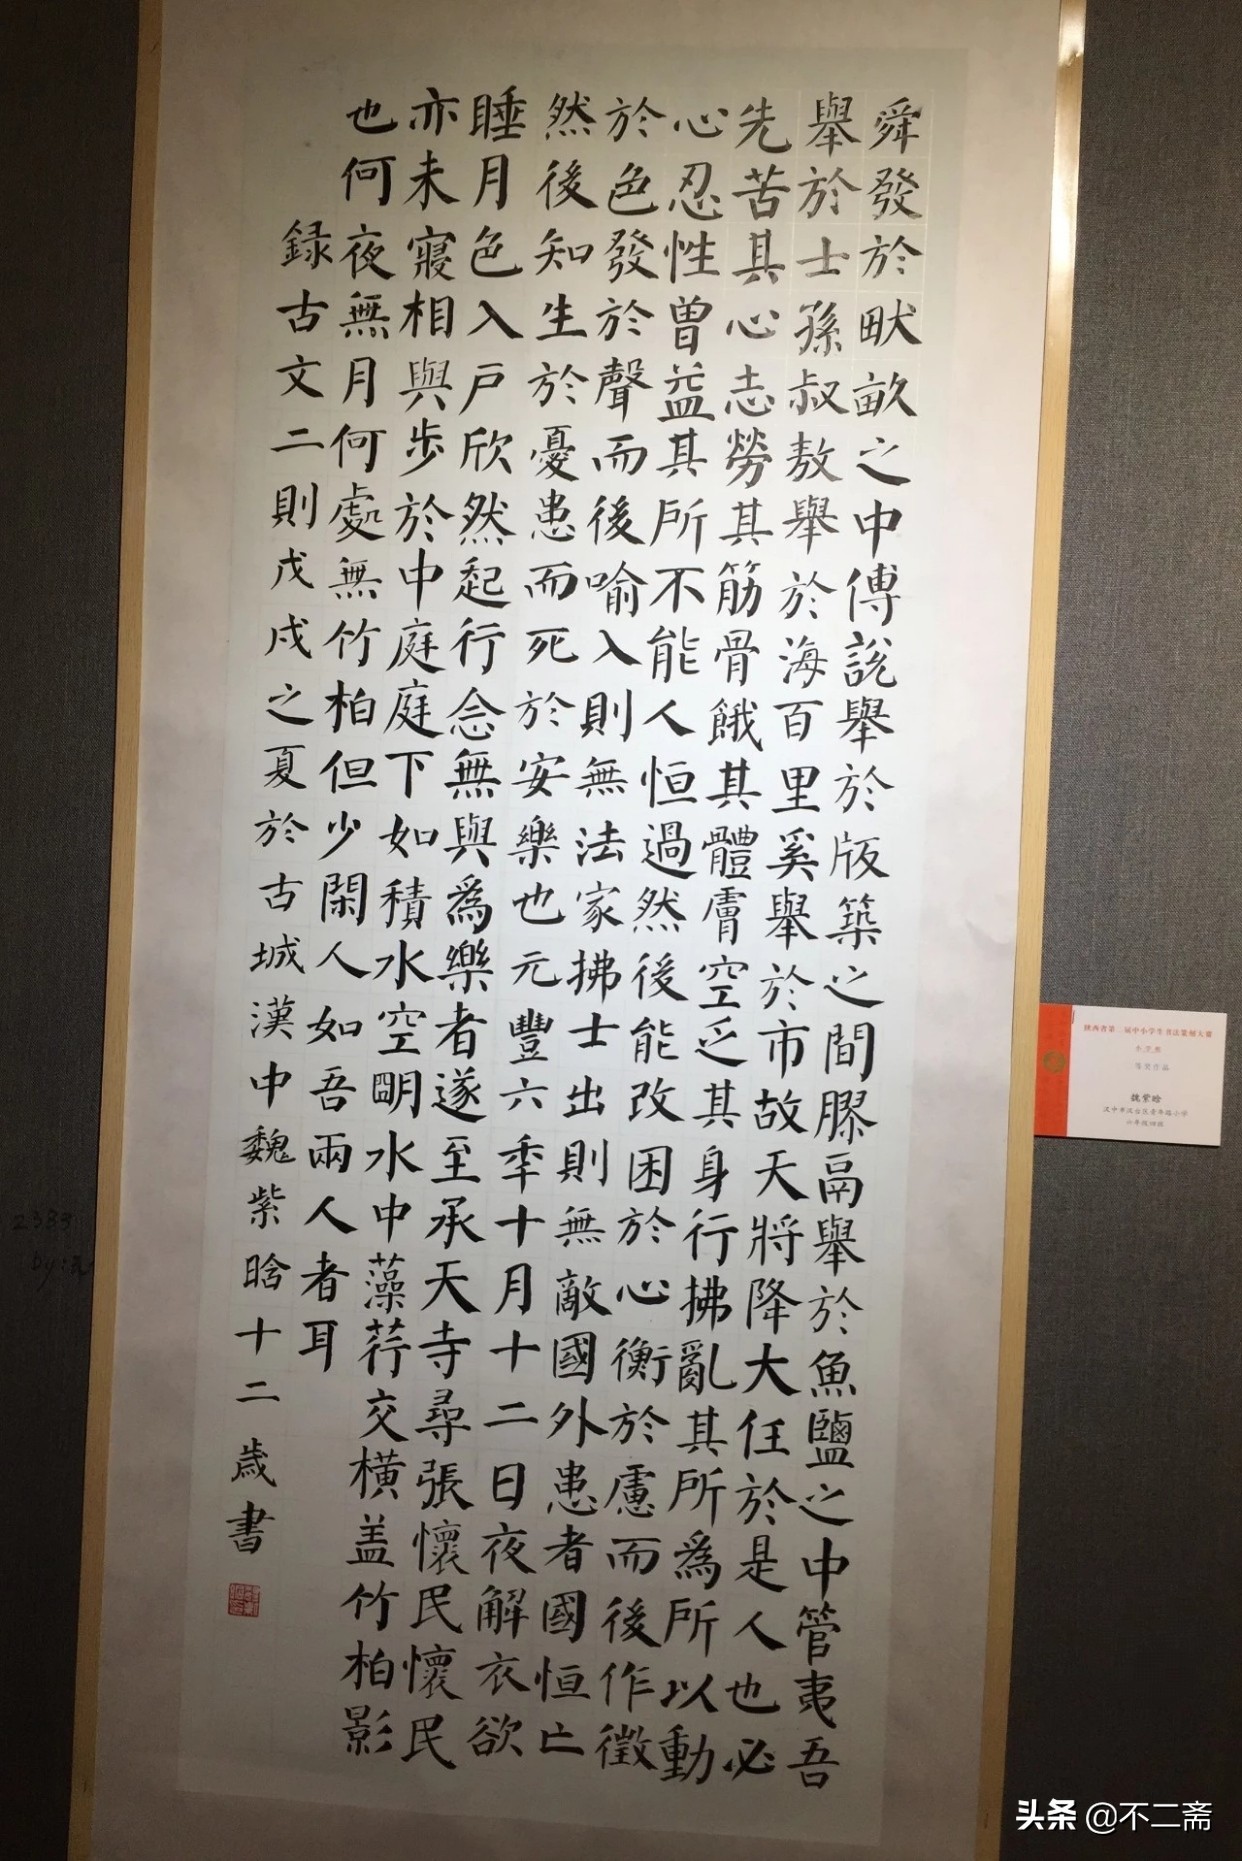 舜發於畎畝之中傅說舉於版築之間膠鬲舉於魚鹽之中管夷吾
舉於士孫叔敖舉於海百里奚舉於市故天將降大任於是人也必
先苦其心志勞其筋骨餓其體膚空乏其身行拂亂其所爲所以動
心忍性曾益其所不能人恒過然後能改困於心衡於慮而後作徵
於色發於聲而後喻入則無法家拂士出則無敵國外患者國恒亡
然後知生於憂患而死於安樂也元豐六秊十月十二日夜解衣欲
睡月色入戶欣然起行念無與爲樂者遂至承天寺尋張懷民懷民
亦未寢相與步於中庭庭下如積水空明水中藻荇交橫盖竹柏影
也何夜無月何處無竹柏但少閑人如吾兩人者耳
録古文二則戊戌之夏於古城漢中魏紫晗十二歲書
陕西省第 届中小学生书法篆刻大赛
魏紫晗
汉中市汉台区青年路小学
六年级四班
头条 @不二斋